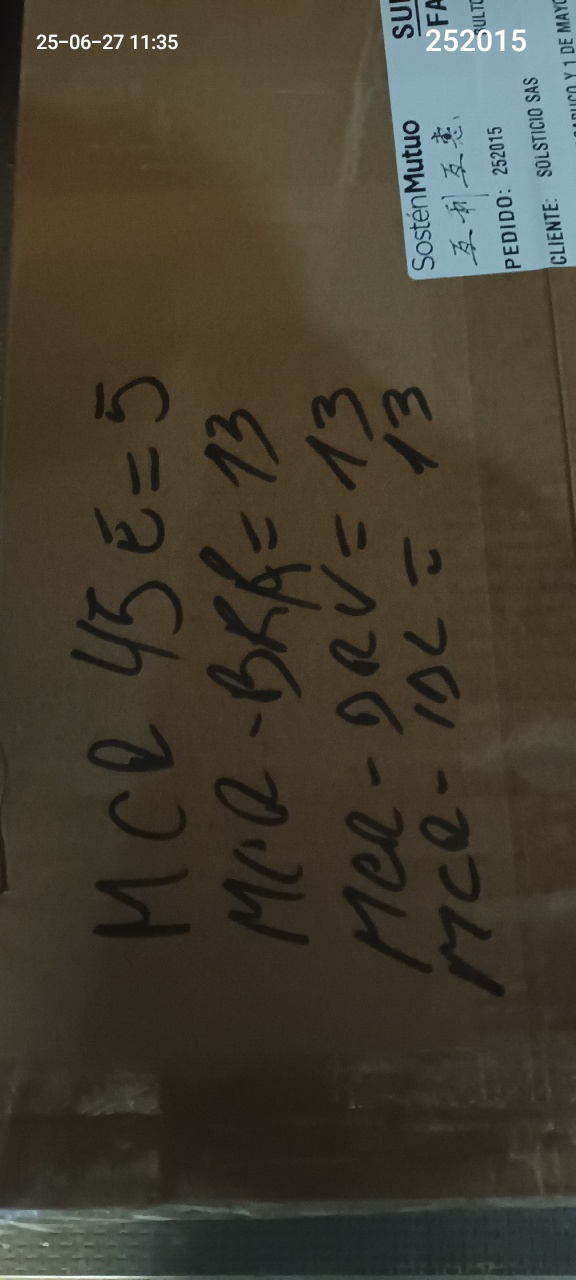 25-06-27 11:35
252015
SosténMutuo
互利互惠
PEDIDO: 252015
CLIENTE: SOLSTICIO SAS
Y 1 DE MAYO
MCR 45E=5
MCR-BRK=13
MCR-DRV=13
MCR-IDL=13